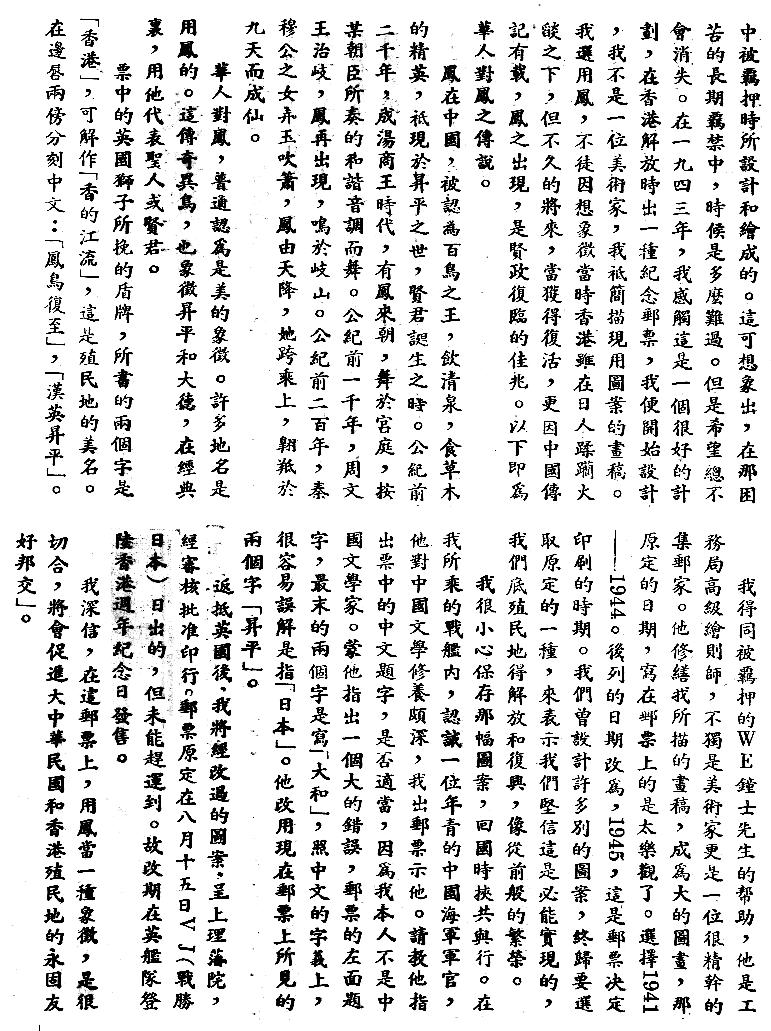 中被羈押時所設計和繪成的。這可想象出，在那困
苦的長期羈禁中，時候是多麼難過。但是希望總不
會消失。在一九四三年，我感觸這是一個很好的計
劃，在香港解放時出一種紀念郵票，我便開始設計
，我不是一位美術家，我祇簡描現用圖案的畫稿。
我選用鳳，不徒因想象徵當時香港雖在日人蹂躪火
燄之下，但不久的將來，當獲得復活，更因中國傳
記有載，鳳之出現，是賢政復臨的佳兆。以下即為
華人對鳳之傳說。
鳳在中國，被認為百鳥之王，飲清泉，食草木
的精英，祇現於昇平之世，賢君誕生之時。公紀前
二千年，成湯商王時代，有鳳來朝，舞於宮庭，按
某朝臣所奏的和諧音調而舞。公紀前一千年，周文
王治岐，鳳再出現，鳴於岐山。公紀前二百年，秦
穆公之女弄玉吹簫，鳳由天降，她跨乘上，翱翔於
九天而成仙。
華人對鳳，普通認爲是美的象徵。許多地名是
用鳳的。這傳奇異鳥，也象徵昇平和大德，在經典
裏，用他代表聖人或賢君。
票中的英國獅子所挽的盾牌，所書的兩個字是
「香港」，可解作「香的江流」，這是殖民地的美名。
在邊唇兩傍分刻中文：「鳳鳥復至」，「漢英昇平」。
我得同被羈押的WE鐘士先生的帮助，他是工
務局高級繪則師，不獨是美術家更是一位很精幹的
集郵家。他修繕我所描的畫稿，成爲大的圖畫，那
原定的日期，寫在郵票上的是太樂觀了。選擇1941
——1944。後列的日期改爲，1945，這是郵票決定
印刷的時期。我們曾設計許多別的圖案，終歸要選
取原定的一種，來表示我們堅信這是必能實現的，
我們底殖民地得解放和復興，像從前般的繁榮。
我很小心保存那幅圖案，回國時挾共與行。在
我所乘的戰艦內，認識一位年青的中國海軍軍官，
他對中國文學修養頗深，我出郵票示他。請教他指
出票中的中文題字，是否適當，因爲我本人不是中
國文學家。蒙他指出一個大的錯誤，郵票的左面題
字，最末的兩個字是寫「大和」，照中文的字義上，
很容易誤解是指「日本」。他改用現在郵票上所見的
兩個字「昇平」。
返抵英國後，我將經改過的圖案，呈上理藩院，
經審核批准印行。郵票原定在八月十五日VJ（戰勝
日本）日出的，但未能趕運到。故改期在英艦隊登
陸香港週年紀念日發售。
我深信，在這郵票上，用鳳當一種象徵，是很
切合，將會促進大中華民國和香港殖民地的永固友
好邦交」。